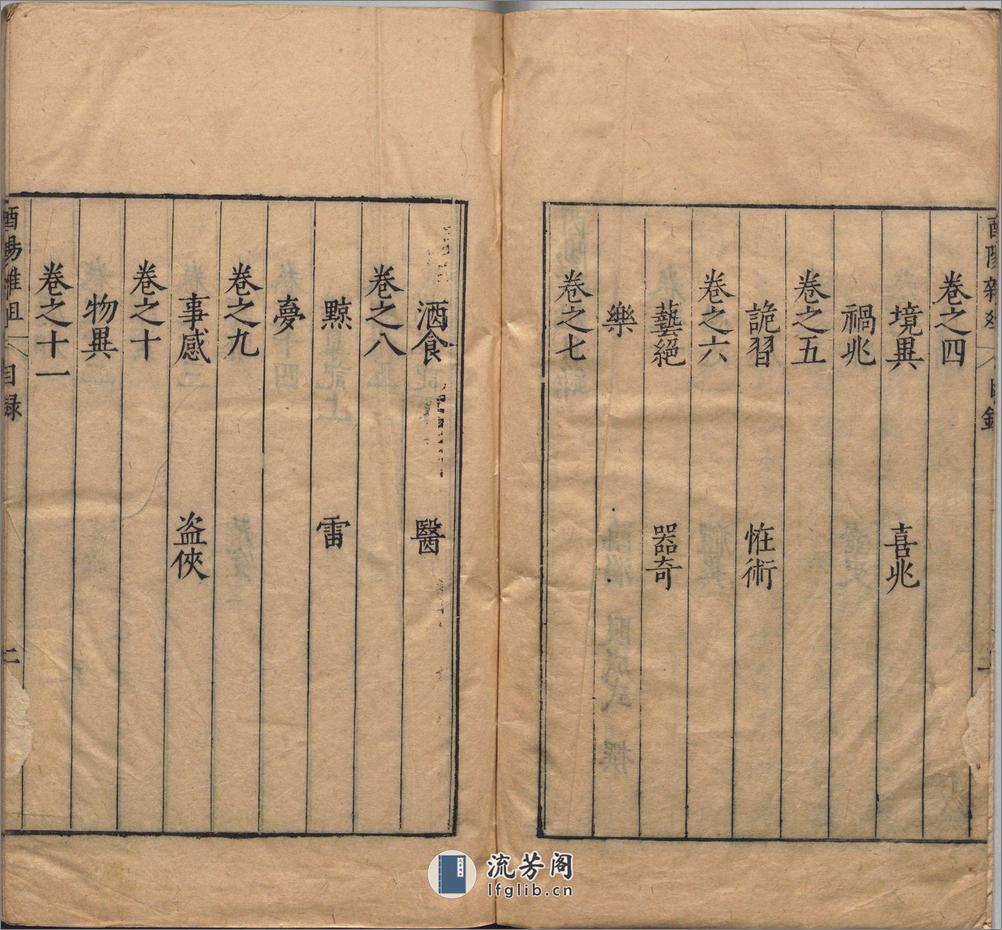 卷之四
境異 喜兆
禍兆
卷之五
詭習 怪術
卷之六
藝絕 器奇
樂
卷之七
酒食 醫
卷之八
黥 雷
夢
卷之九
事感 盜俠
卷之十
物異
卷之十一
酉陽雜俎 目録
二
流芳阁
lfglib.cn